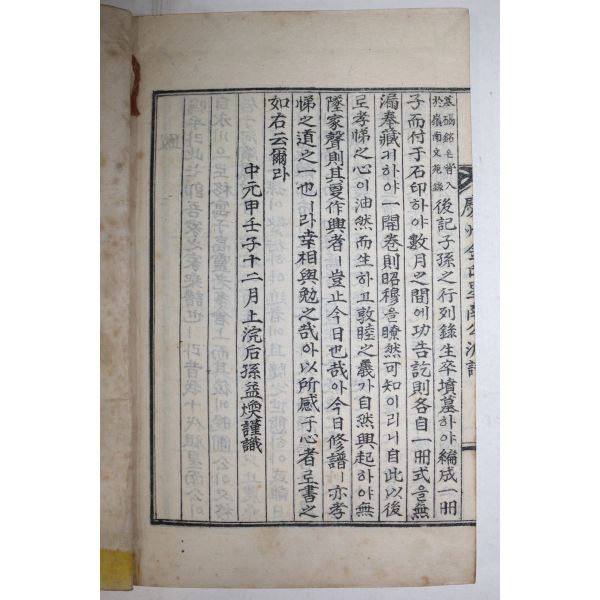 慶州金氏星南公派譜
於嶺南文苑錄
後記子孫之行列錄生卒墳墓하야編成一冊
子而付于石印하야數月之間에功告訖則各自一冊式을無
漏奉藏커하야一開卷則昭穆을瞭然可知이리니自此以後
로孝悌之心이油然而生하고敦睦之義가自然興起하야無
墜家聲則其夏作興者ㅣ豈止今日也哉아今日修譜ㅣ亦孝
悌之道之一也ㅣ라幸相與勉之哉아以所感于心者로書之
如右云爾라
中元甲壬子十二月上浣后孫益煥謹識